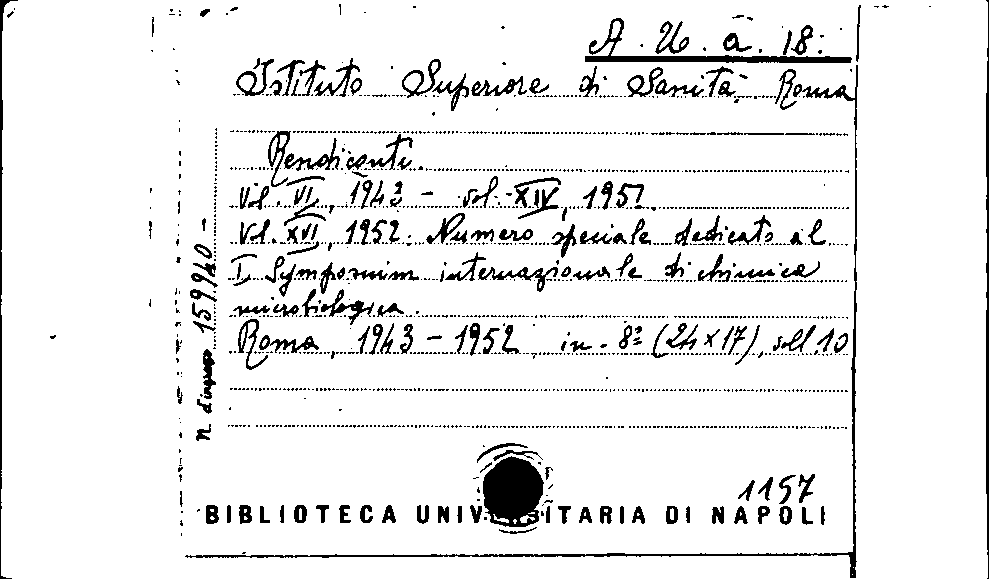 A. U. a. 18.
Istituto Superiore di Sanità. Roma
Rendiconti.
Vol. VI, 1943 - vol. XIV, 1951.
Vol. XVI, 1952. Numero speciale dedicato al
I Symposium internazionale di chimica
microbiologica.
Roma, 1943-1952, in-8º (24x17), voll. 10
n. d'ingresso 159940-
1157
BIBLIOTECA UNIVERSITARIA DI NAPOLI